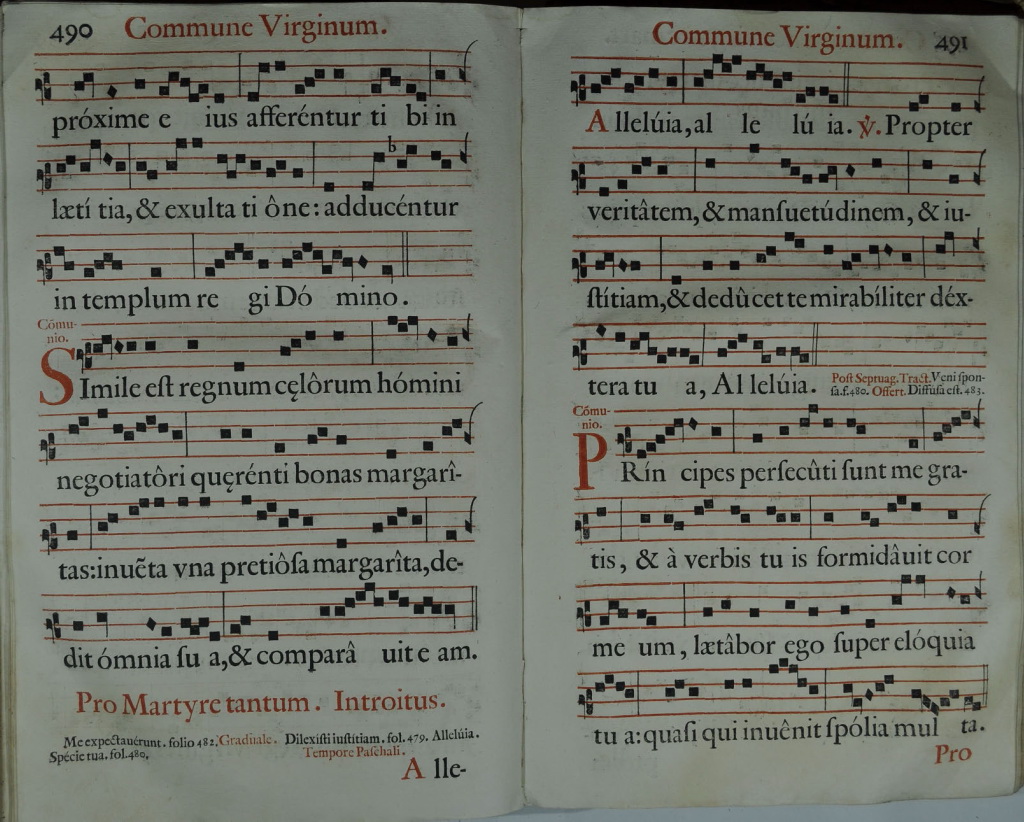 490 Commune Virginum.
próxime e ius afferéntur ti bi in
lætí tia, & exulta ti ône: adducéntur
in templum re gi Dó mino.
Cõmu-
nio.
SImile est regnum cęlôrum hómini
negotiatôri quęrénti bonas margarî-
tas: inuẽta vna pretiôſa margarîta, de-
dit ómnia ſu a, & comparâ uit e am.
Pro Martyre tantum. Introitus.
Me expectauérunt. folio 482. Graduale. Dilexiſti iuſtitiam. fol. 479. Allelúia.
Spécie tua. fol. 480. Tempore Paſchali.
A lle-
Commune Virginum. 491
A llelúia, al le lú ia. ℣. Propter
veritâtem, & manſuetúdinem, & iu-
ſtítiam, & dedûcet te mirabíliter déx-
tera tu a, Al lelúia. Poſt Septuag. Tract. Veni ſpon-
ſa. f. 480. Offert. Diffuſa eſt. 483.
Cõmu-
nio.
PRín cipes perſecûti ſunt me gra-
tis, & à verbis tu is formidâuit cor
me um, lætâbor ego ſuper elóquia
tu a: quaſi qui inuênit ſpólia mul ta.
Pro